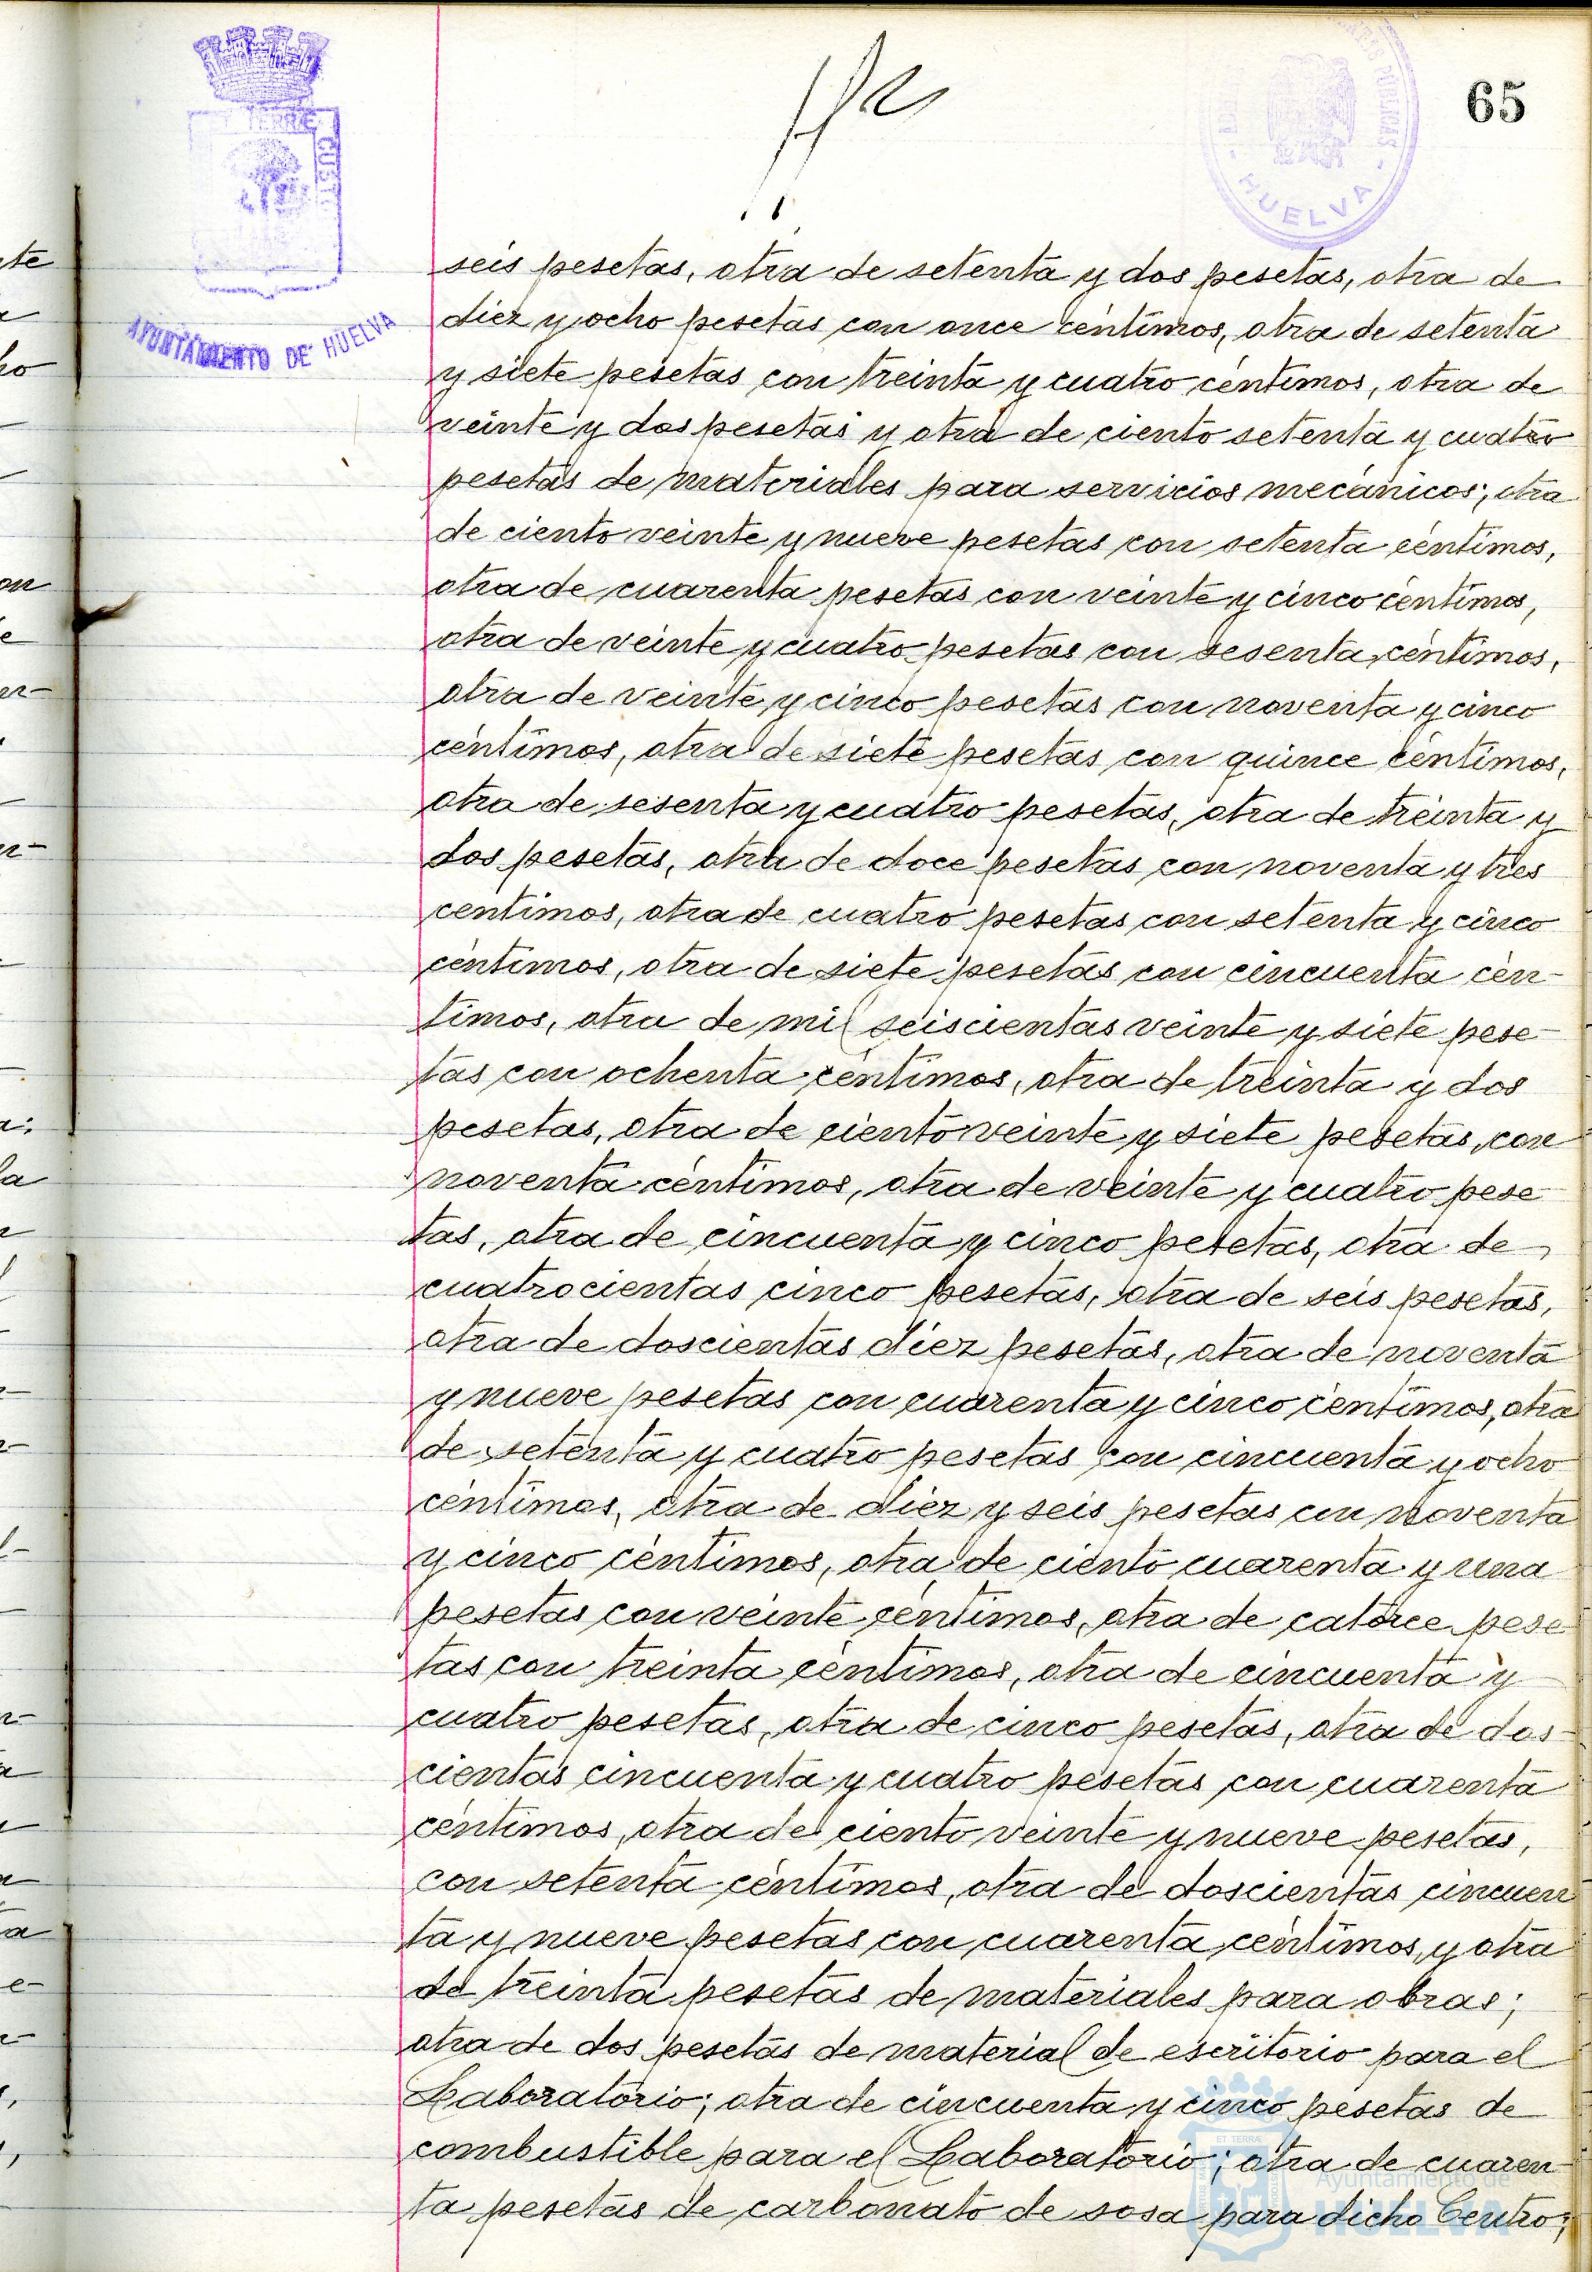 65
TERRÆ
CUST
AYUNTAMIENTO DE HUELVA
HUELVA
seis pesetas, otra de setenta y dos pesetas, otra de
diez y ocho pesetas con once céntimos, otra de setenta
y siete pesetas con treinta y cuatro céntimos, otra de
veinte y dos pesetas y otra de ciento setenta y cuatro
pesetas de materiales para servicios mecánicos; otra
de ciento veinte y nueve pesetas con setenta céntimos,
otra de cuarenta pesetas con veinte y cinco céntimos,
otra de veinte y cuatro pesetas con sesenta céntimos,
otra de veinte y cinco pesetas con noventa y cinco
céntimos, otra de siete pesetas con quince céntimos,
otra de sesenta y cuatro pesetas, otra de treinta y
dos pesetas, otra de doce pesetas con noventa y tres
centimos, otra de cuatro pesetas con setenta y cinco
céntimos, otra de siete pesetas con cincuenta cén-
timos, otra de mil seiscientas veinte y siete pese-
tas con ochenta céntimos, otra de treinta y dos
pesetas, otra de ciento veinte y siete pesetas, con
noventa céntimos, otra de veinte y cuatro pese-
tas, otra de cincuenta y cinco pesetas, otra de
cuatrocientas cinco pesetas, otra de seis pesetas,
otra de doscientas diez pesetas, otra de noventa
y nueve pesetas con cuarenta y cinco céntimos, otra
de setenta y cuatro pesetas con cincuenta y ocho
céntimos, otra de diez y seis pesetas con noventa
y cinco céntimos, otra de ciento cuarenta y una
pesetas con veinte céntimos, otra de catorce pese-
tas con treinta céntimos, otra de cincuenta y
cuatro pesetas, otra de cinco pesetas, otra de dos-
cientas cincuenta y cuatro pesetas con cuarenta
céntimos, otra de ciento veinte y nueve pesetas,
con setenta céntimos, otra de doscientas cincuen
ta y nueve pesetas con cuarenta céntimos, y otra
de treinta pesetas de materiales para obras;
otra de dos pesetas de material de escritorio para el
Laboratorio; otra de cincuenta y cinco pesetas de
combustible para el Laboratorio; otra de cuaren-
ta pesetas de carbonato de sosa para dicho Centro;
Ayuntamiento de
HUELVA